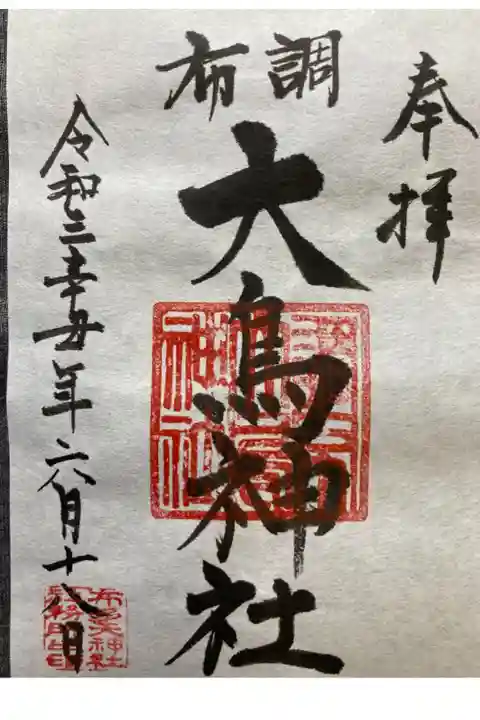 奉拝
調布
大鳥神社
令和三辛丑年六月十八日
布多天神社
社務所之印